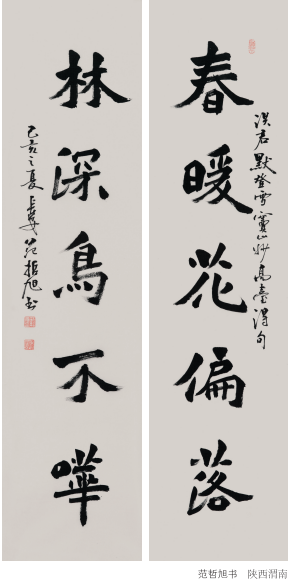 洪君默登雪竇山妙高臺得句
春暖花偏落
林深鳥不嘩
己亥之夏長安范哲旭書
范哲旭书 陕西渭南